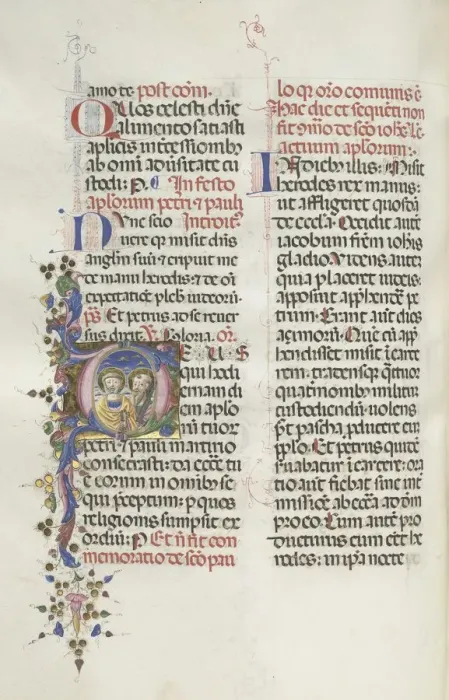 amo te post com.
Quos celesti dne
alimento satiasti
aplicis intcessionib
ab omi aduersitate cu
stodi: P. In festo
aplorum petri et pauli
Nunc scio Introit.
uere qr misit dns
anglm suu et eripuit me
de manu herodis et de oi
expectatioe pleb iudeoru.
ps Et petrus ad se reuer
sus dixit. Gloria. or.
DEUS
qui hodi
ernam di
em aplo
rum tuor
petri et pauli martirio
consecrasti: da eccle tu
e eorum in omib se
qui preceptum: p quos
religionis sumpsit ex
ordiu: P Et n fit com
memoratio de sco pau
lo qr oro comunis e
Hac die et sequenti non
fit de sco iohe Le
actuum aplorum.
In dieb illis: Misit
herodes rex manus:
ut affligeret quosda
de eccla. Occidit aute
iacobum frem iohis
gladio. Videns aute
quia placeret iudeis:
apposuit apphende pe
trum. Erant aut dies
açimoru. Que cu app
hendisset misit i carce
rem: tradens qr qttuor
quaternionib militu
custodiendu: uolens
pt pascha pducere eu
pplo. Et petrus quide
fuabatur i carcere: ora
tio aut fiebat sine int
missioe ab eccla ad dm
pro eo. Cum aute pro
ducturus eum eet he
rodes: in ipa nocte